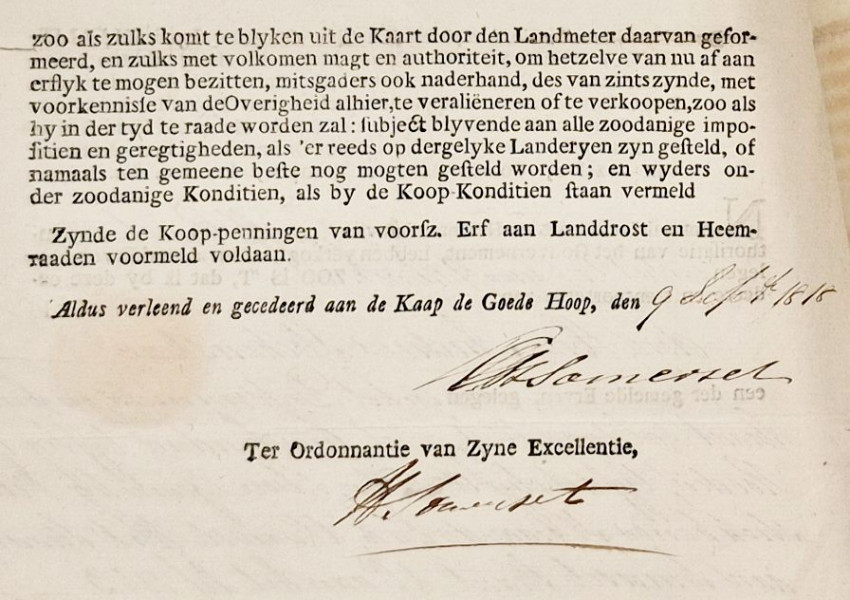 zoo als zulks komt te blyken uit de Kaart door den Landmeter daarvan gefor-
meerd, en zulks met volkomen magt en authoriteit, om hetzelve van nu af aan
erflyk te mogen bezitten, mitsgaders ook naderhand, des van zints zynde, met
voorkennisſe van deOverigheid alhier, te veraliëneren of te verkoopen, zoo als
hy in der tyd te raade worden zal: ſubject blyvende aan alle zoodanige impo-
ſitien en geregtigheden, als 'er reeds op dergelyke Landeryen zyn geſteld, of
namaals ten gemeene beſte nog mogten geſteld worden; en wyders on-
der zoodanige Konditien, als by de Koop-Konditien ſtaan vermeld
Zynde de Koop-penningen van voorſz. Erf aan Landdrost en Heem-
raaden voormeld voldaan.
Aldus verleend en gecedeerd aan de Kaap de Goede Hoop, den 9 Septr 1818
CHSomerset
een der gemelde Erven, gelegen
Ter Ordonnantie van Zyne Excellentie,
H. Somerset